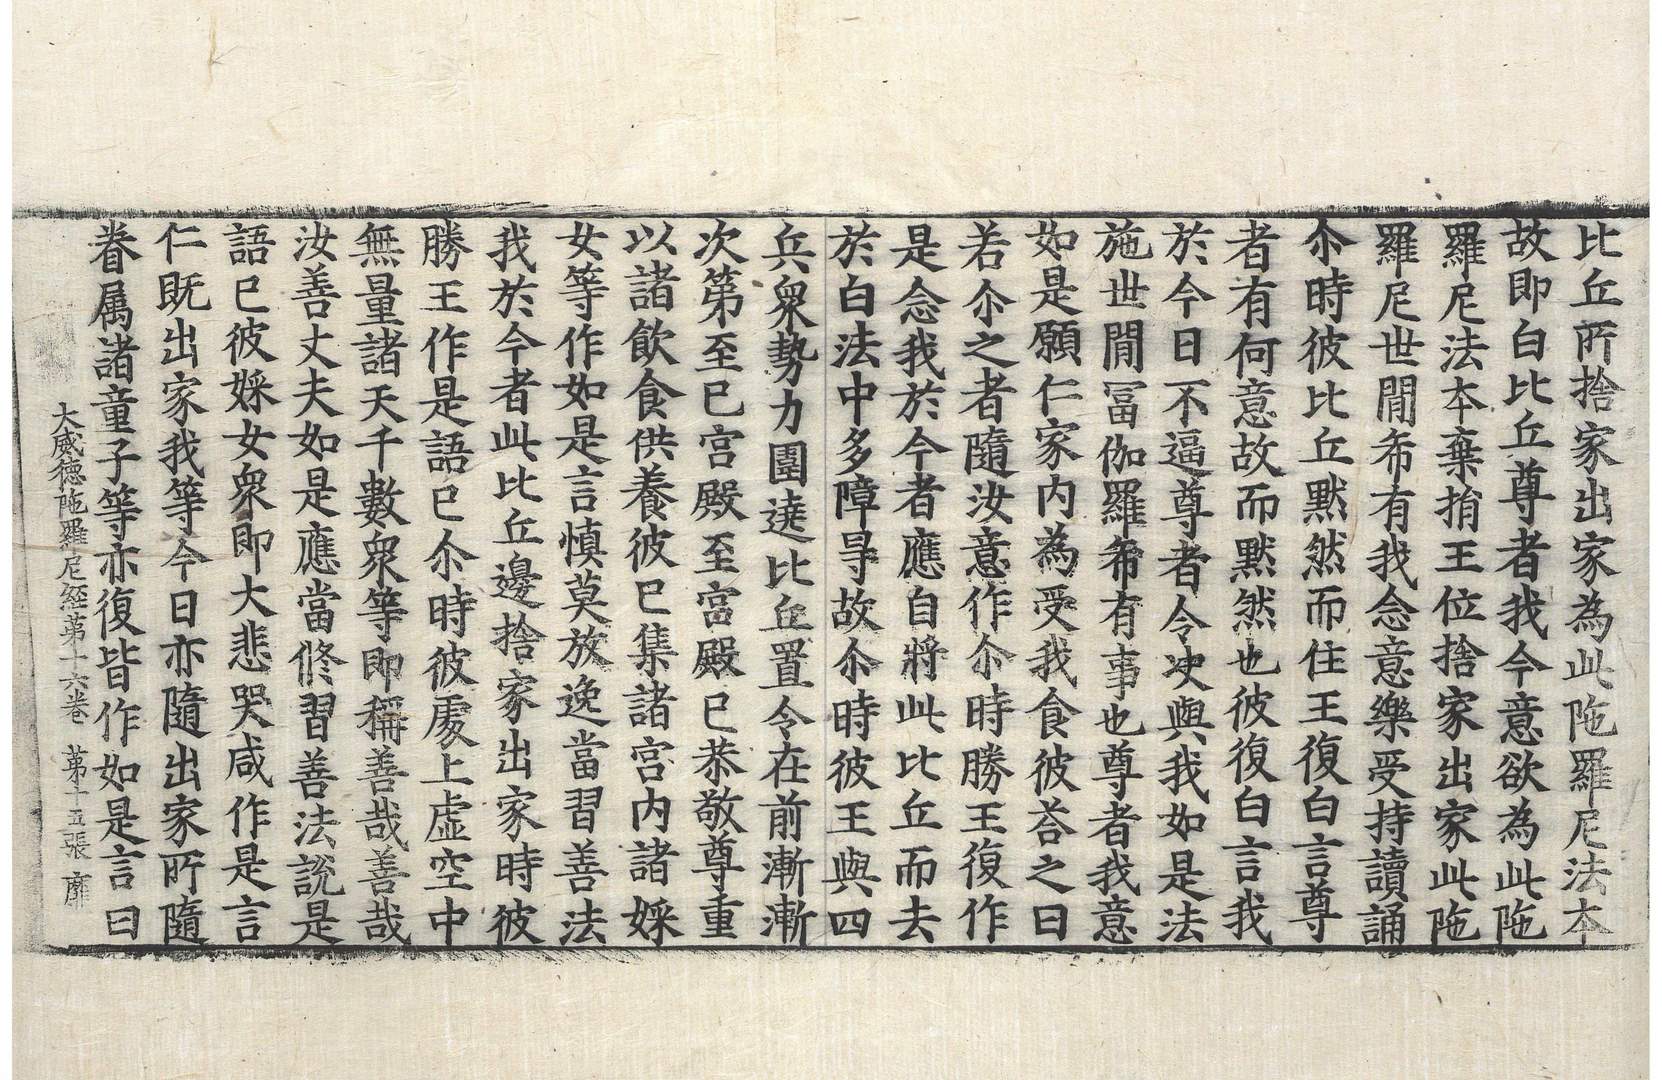 比丘所捨家出家為此陁羅尼法本
故即白比丘尊者我今意欲為此陁
羅尼法本棄捐王位捨家出家此陁
羅尼世間希有我念意樂受持讀誦
尒時彼比丘默然而住王復白言尊
者有何意故而默然也彼復白言我
於今日不逼尊者令決與我如是法
施世間冨伽羅希有事也尊者我意
如是願仁家内為受我食彼荅之曰
若尒之者隨汝意作尒時勝王復作
是念我於今者應自將此比丘而去
於白法中多障㝵故尒時彼王與四
兵衆勢力圍遶比丘置令在前漸漸
次第至巳宫殿至宫殿巳恭敬尊重
以諸飲食供養彼巳集諸宫内諸婇
女等作如是言慎莫放逸當習善法
我於今者此比丘邊捨家出家時彼
勝王作是語巳尒時彼處上虛空中
無量諸天千數衆等即稱善哉善哉
汝善丈夫如是應當修習善法説是
語巳彼婇女衆即大悲哭咸作是言
仁既出家我等今日亦隨出家所隨
眷属諸童子等亦復皆作如是言曰
大威德陁羅尼經第十六卷 第十五張 靡